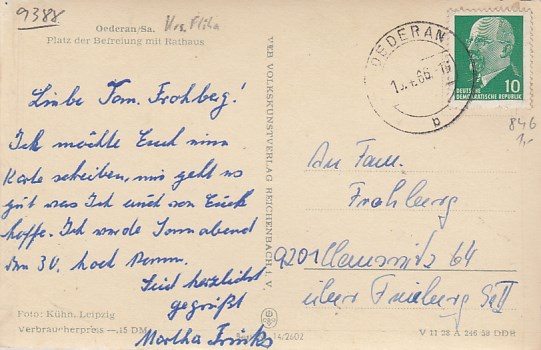 9388
Krs. Flöha
Oederan/Sa.
Platz der Befreiung mit Rathaus
Liebe Fam. Frohberg!
Ich möchte Euch eine
Karte schreiben, mir geht es
gut was Ich und von Euch
hoffe. Ich werde Sonnabend
den 30. nach
Seid herzlichst
gegrüßt
Martha
Foto: Kühn, Leipzig
Verbraucherpreis —,15 DM
VEB VOLKSKUNSTVERLAG REICHENBACH I. V.
14/2602
OEDERAN
66
b
10
DEUTSCHE
DEMOKRATISCHE REPUBLIK
846
1,-
An Fam.
Frohberg
9201 Clausnitz 64
über Freiberg Sa
V 11 28 A 246 58 DDR